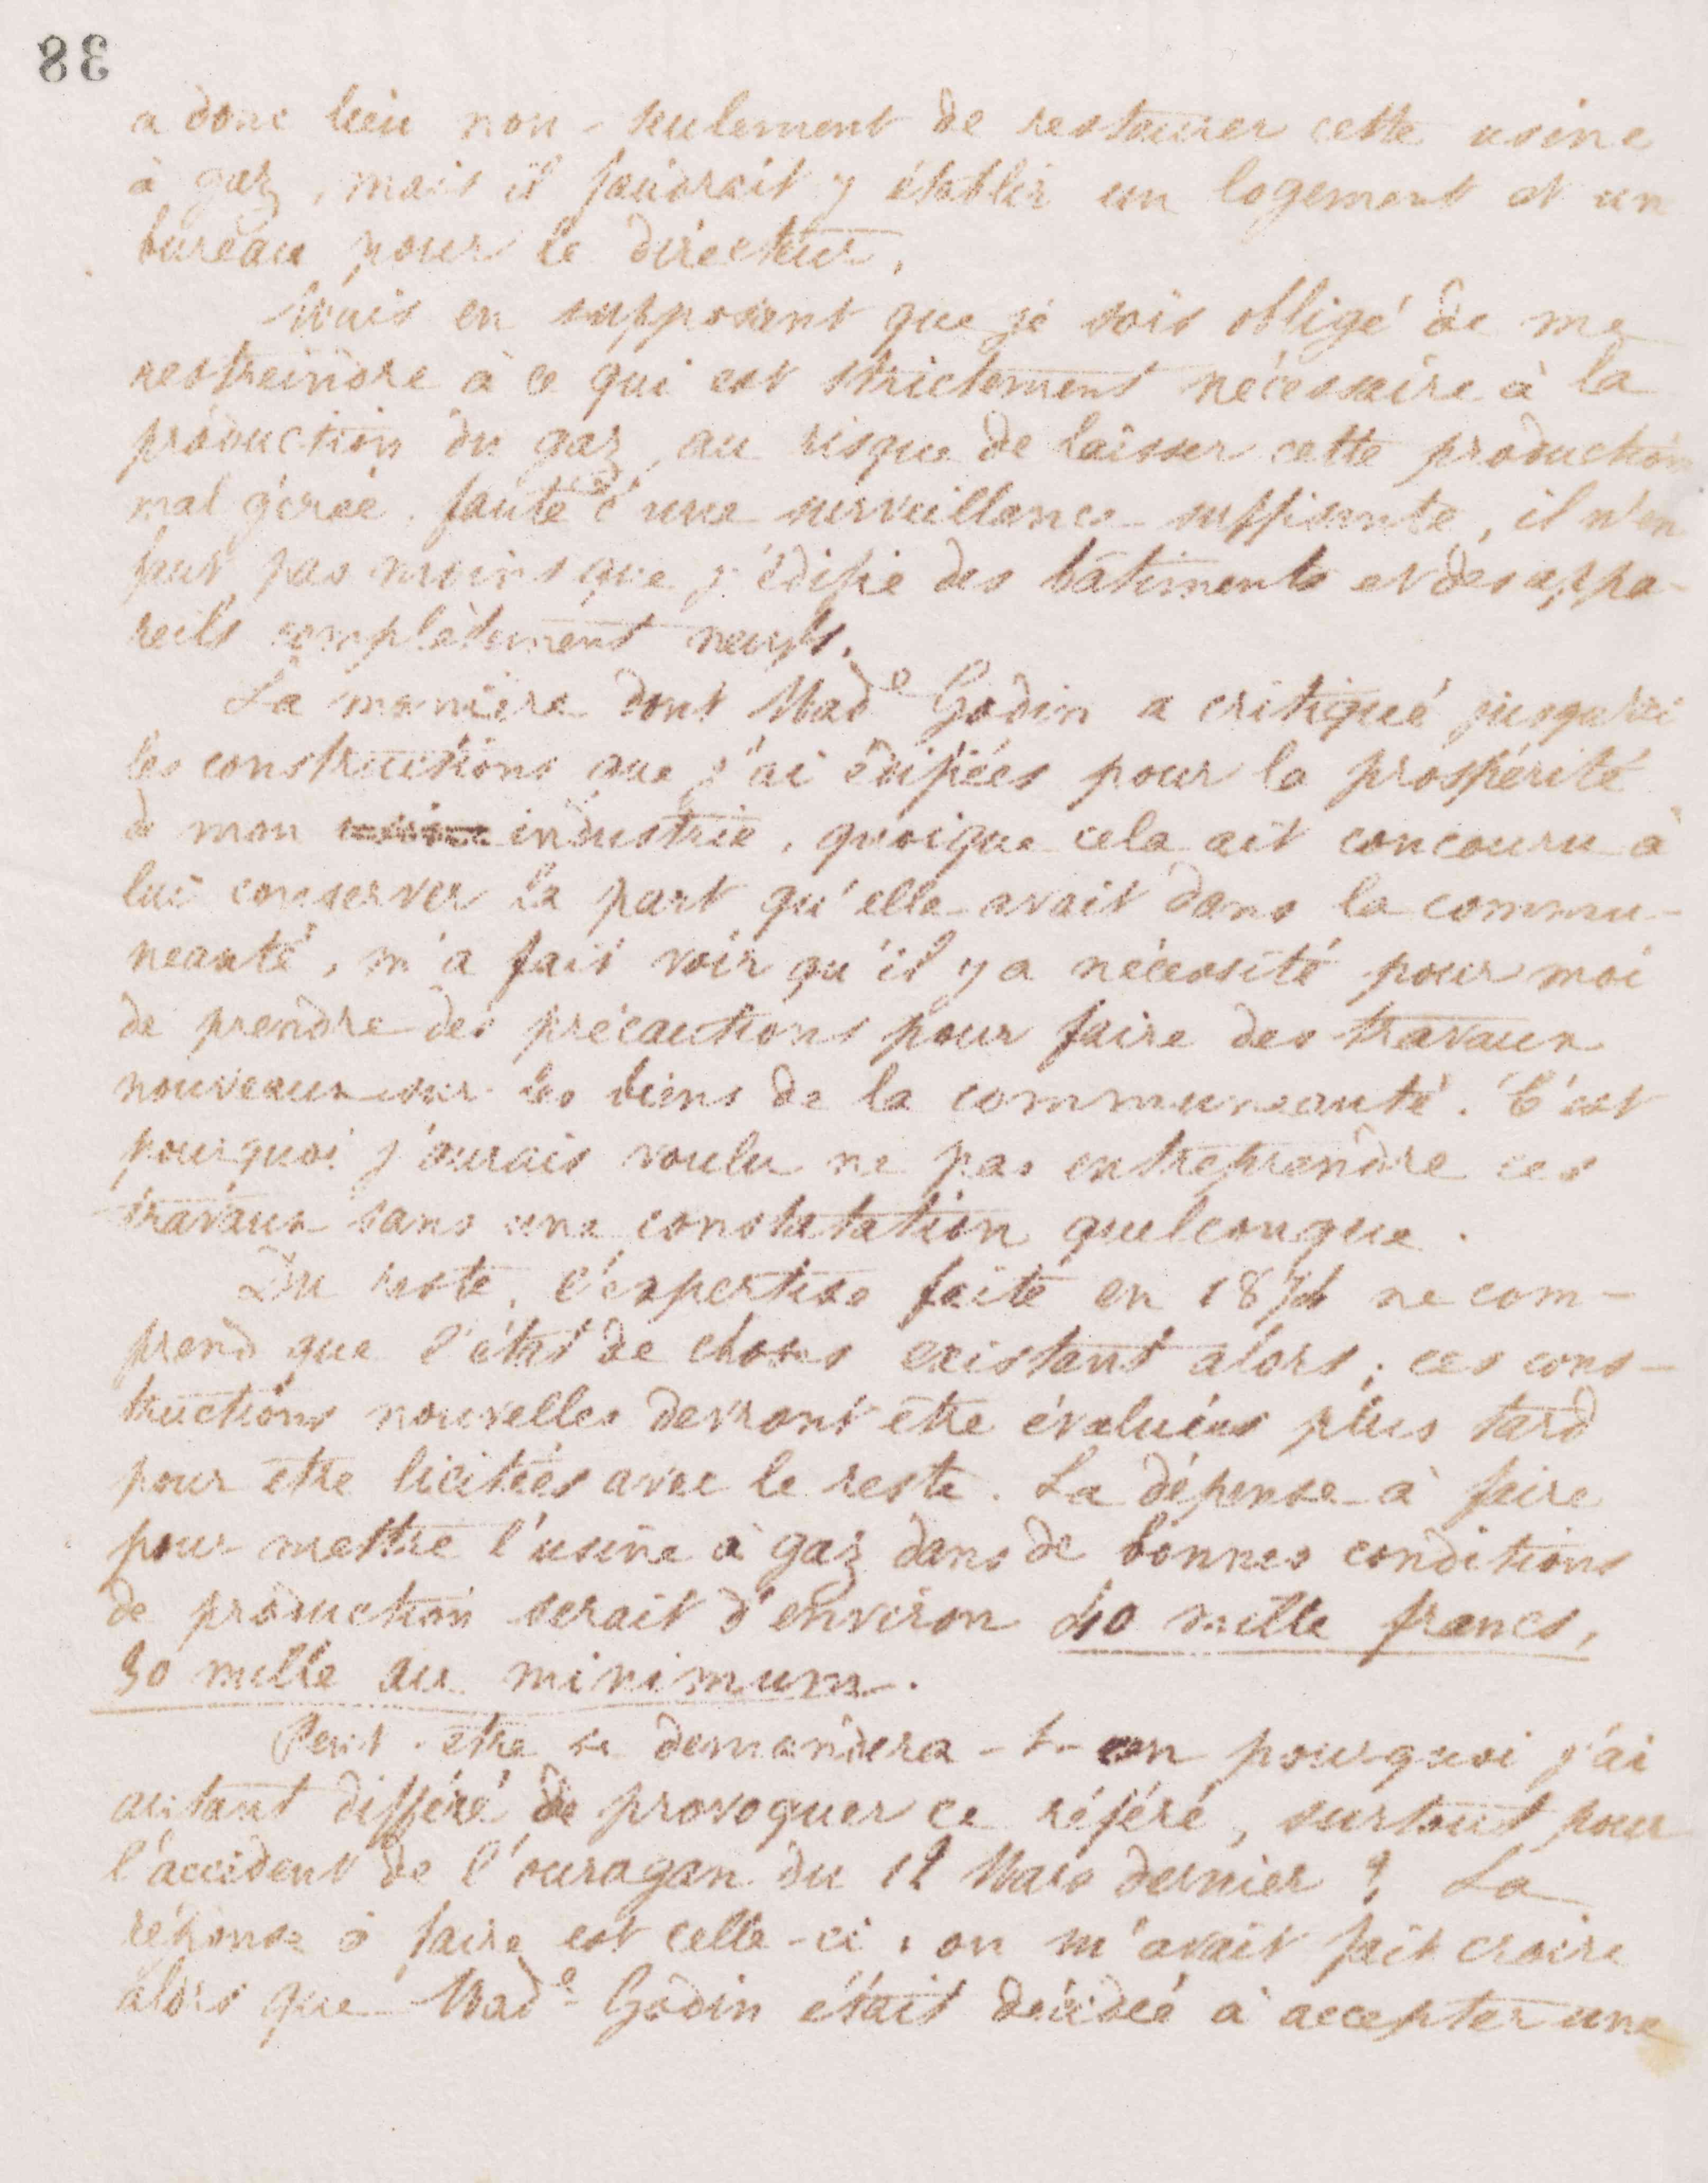 38
a donc lieu non-seulement de restaurer cette usine
à gaz, mais il faudrait y établir un logement et un
bureau pour le directeur.
Mais en supposant que je sois obligé de me
restreindre à ce qui est strictement nécessaire à la
production du gaz, au risque de laisser cette production
mal gérée, faute d'une surveillance suffisante, il n'en
faut pas moins que j'édifie des bâtiments et des appa-
reils complètement neufs.
La manière dont Made Godin a critiqué jusqu'ici
les constructions que j'ai édifiées pour la prospérité
de mon industrie, quoique cela ait concouru à
lui conserver la part qu'elle avait dans la commu-
neauté, m'a fait voir qu'il y a nécessité pour moi
de prendre des précautions pour faire des travaux
nouveaux sur les biens de la communeauté. C'est
pourquoi j'aurais voulu ne pas entreprendre ces
travaux sans une constatation quelconque.
Du reste, l'expertise faite en 1874 ne com-
prend que l'état de choses existant alors; ces cons-
tructions nouvelles devront être évaluées plus tard
pour être licitées avec le reste. La dépense à faire
pour mettre l'usine à gaz dans de bonnes conditions
de production serait d'environ 40 mille francs,
30 mille au minimum.
Peut-être se demandera-t-on pourquoi j'ai
autant différé de provoquer ce référé, surtout pour
l'accident de l'ouragan du 12 Mars dernier? La
réponse à faire est celle-ci, on m'avait fait croire
alors que Made Godin était décidée à accepter une